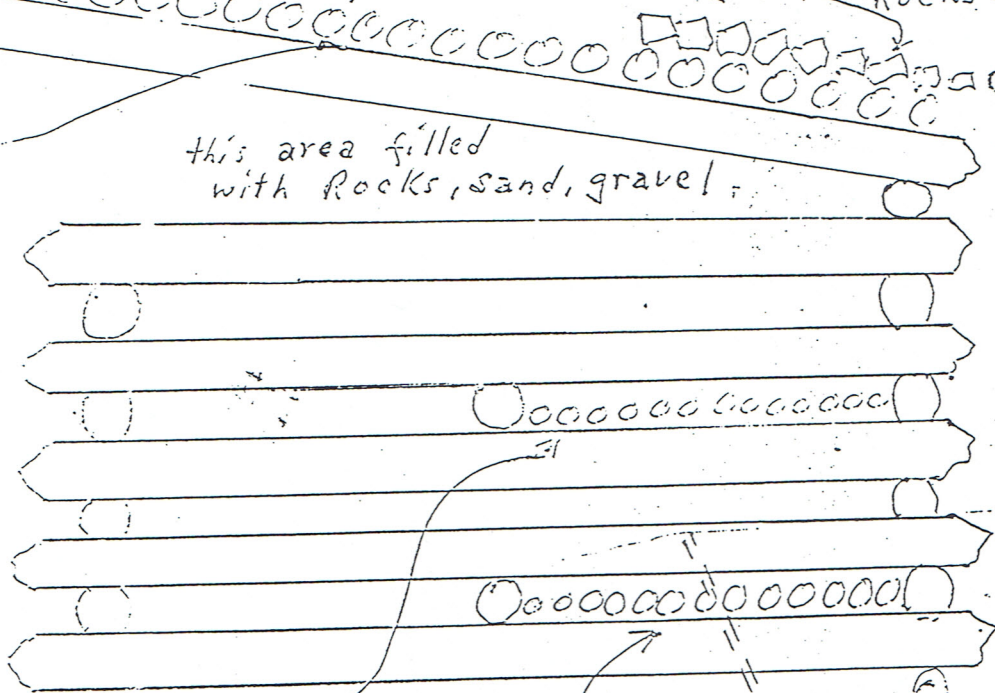 Rocks
this area filled
with Rocks, sand, gravel.